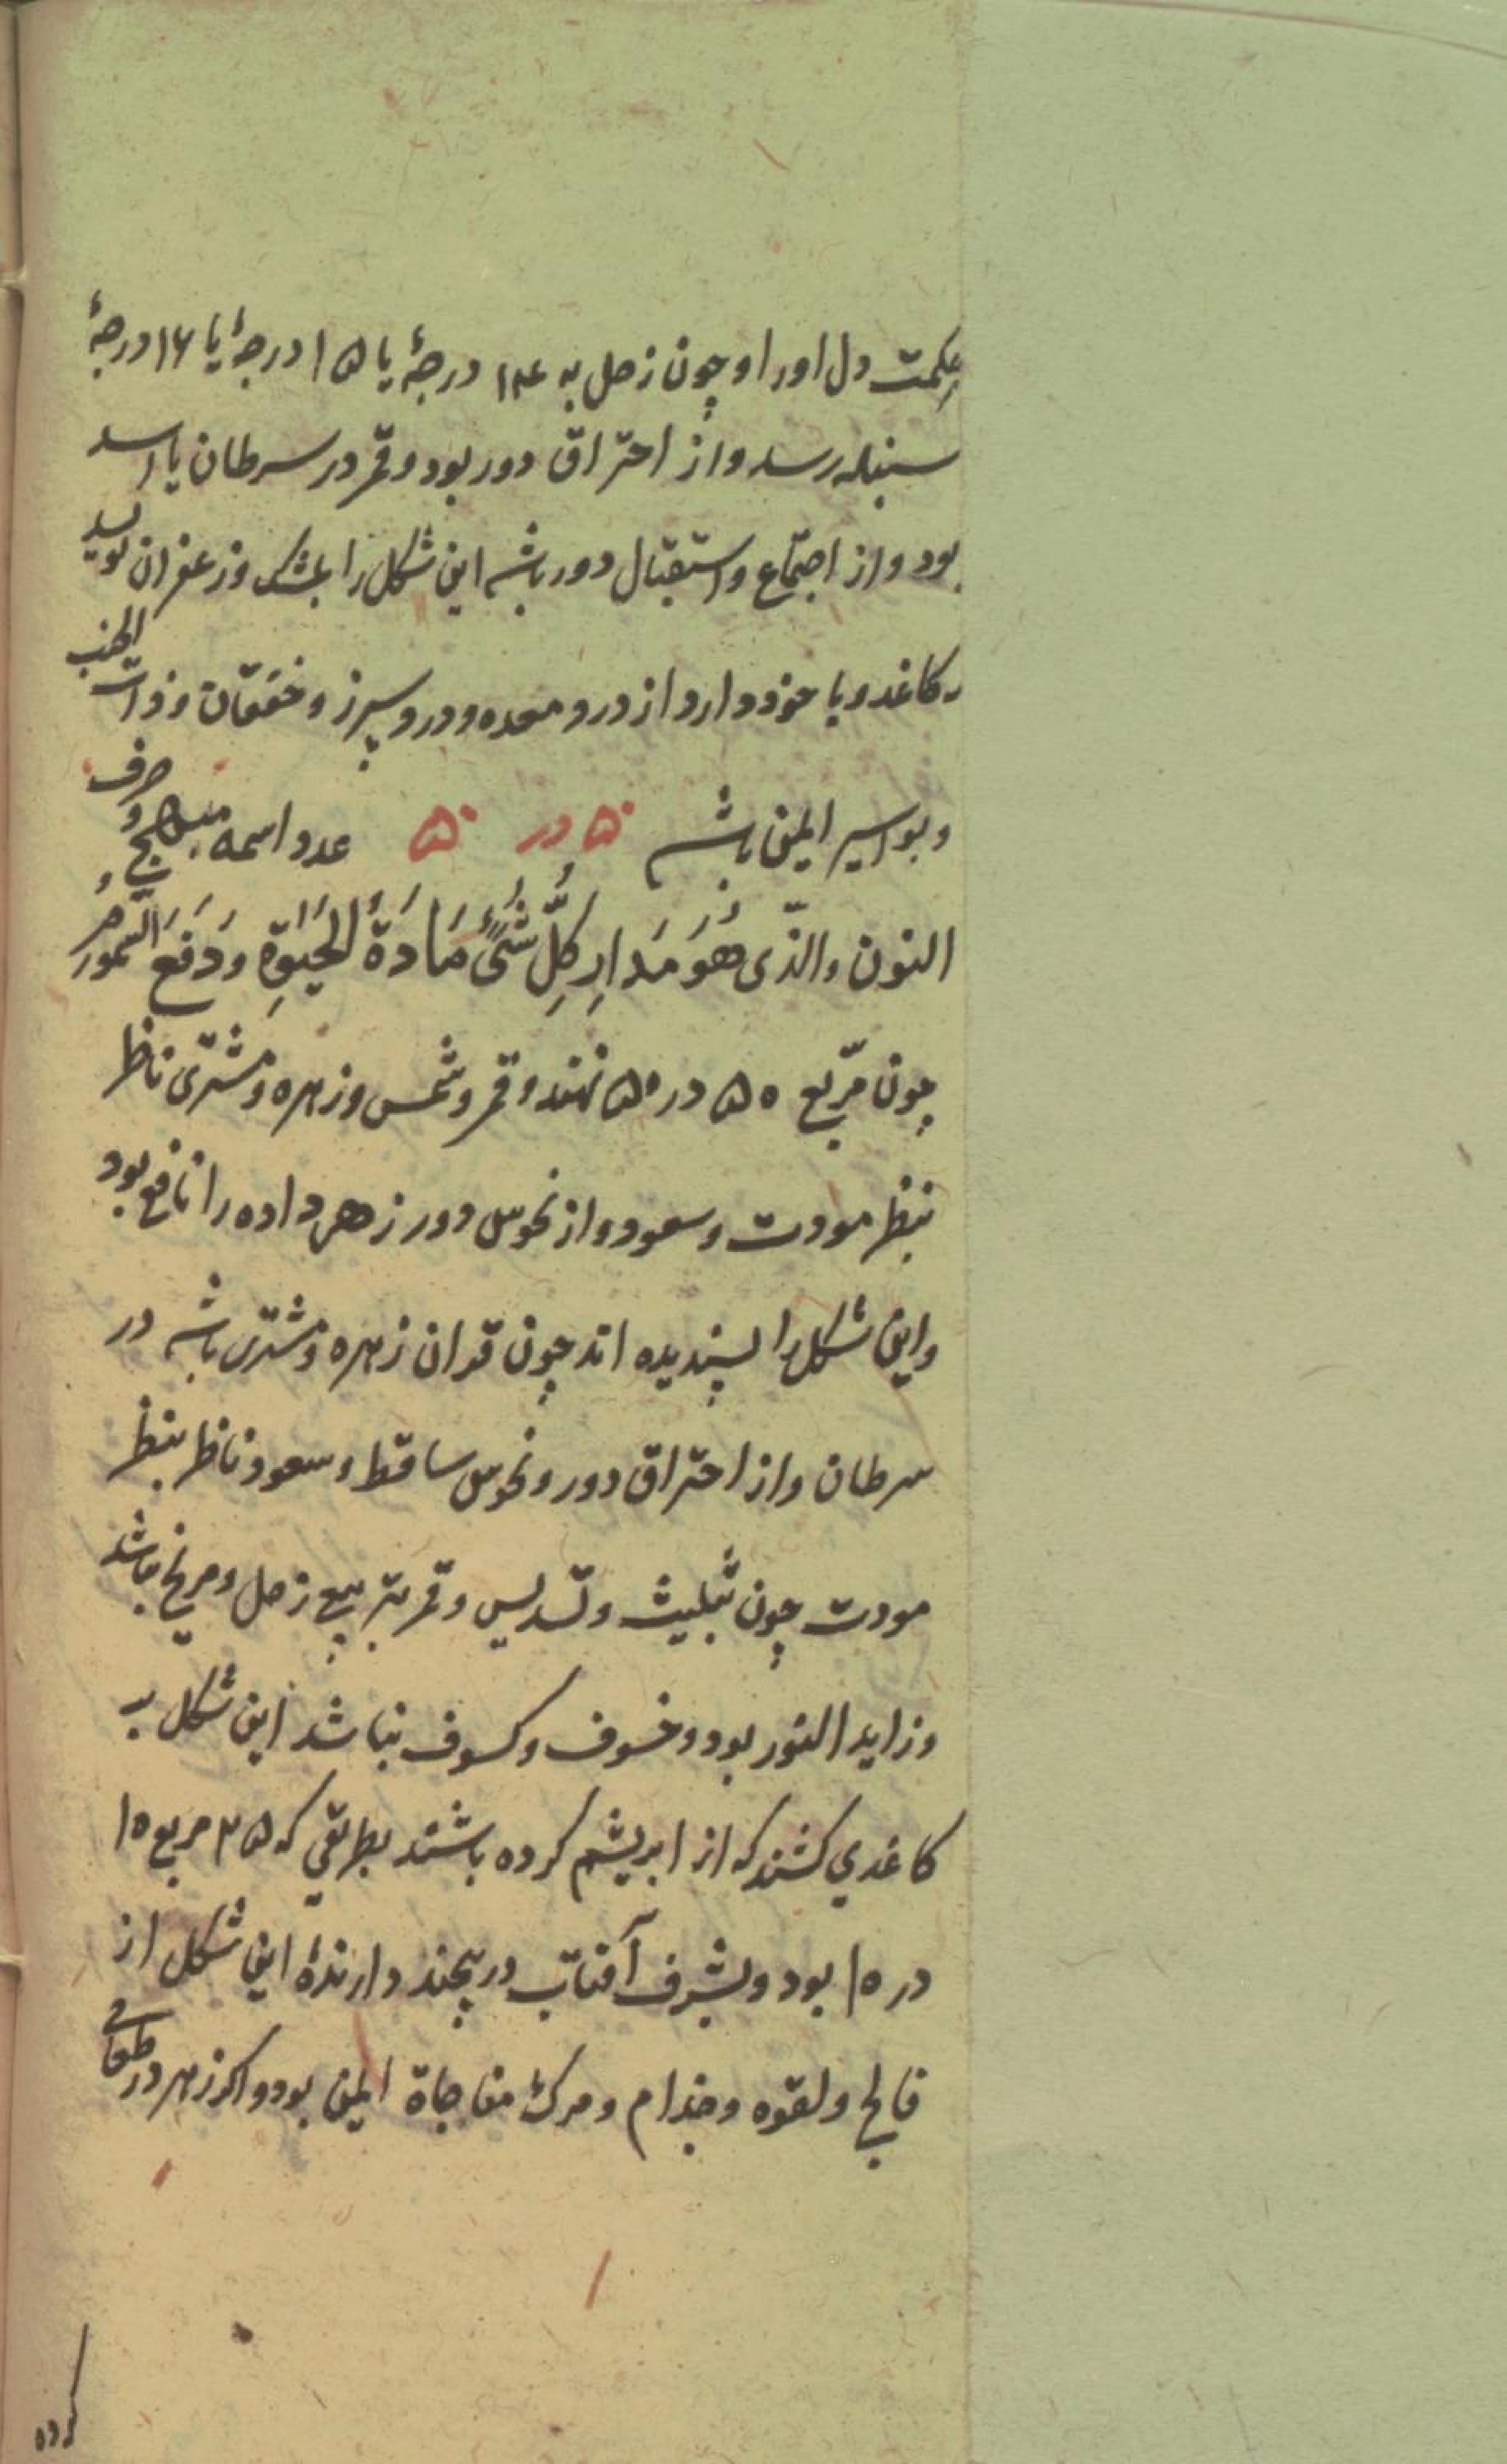 حکمت دل اورا و چون زحل به ۱۴ درجهٔ یا ۱۵ درجهٔ یا ۱۶ درجهٔ
سنبله رسد و از احتراق دور بود و قمر در سرطان یا اسد
بود و از اجتماع و استقبال دور باشد این شکل را بمشک و زعفران نویسد
بر کاغد و با خود دارد از درد معده و درد سپرز و خفقان و ذات الجنب
و بواسیر ایمن باشد ۵۰ در ۵۰ عدد اسمه حرف
النون والذّی هُوَ مَدارِ کِلُّ شَیًٔ مَادَةُ الحَیٰوةِ ودَفَعَ السّمُومُ
چون مربّع ۵۰ در ۵۰ نهند و قمر و شمس و زهره و مشتری ناظر
بنظر مودت و سعود و از نحوس دور زهر داده را نافع بود
و این شکل را پسندیده اند چون قران زهره و مشتری باشد در
سرطان و از احتراق دور و نحوس ساقط و سعود ناظر بنظر
مودت چون تثلیث و تسدیس و قمر بتربیع زحل و مریخ نباشد
و زاید النور بود و خسوف و کسوف نباشد این شکل بر
کاغدی کشند که از ابریشم کرده باشند بطریقی که ۲۵ مربع ۱۰
در ۱۰ بود و بشرف آفتاب درپیچند دارندهٔ این شکل از
فالج و لقوه و جذام و مرک مفاجاة ایمن بود و اکر زهر در طعامی
کرده